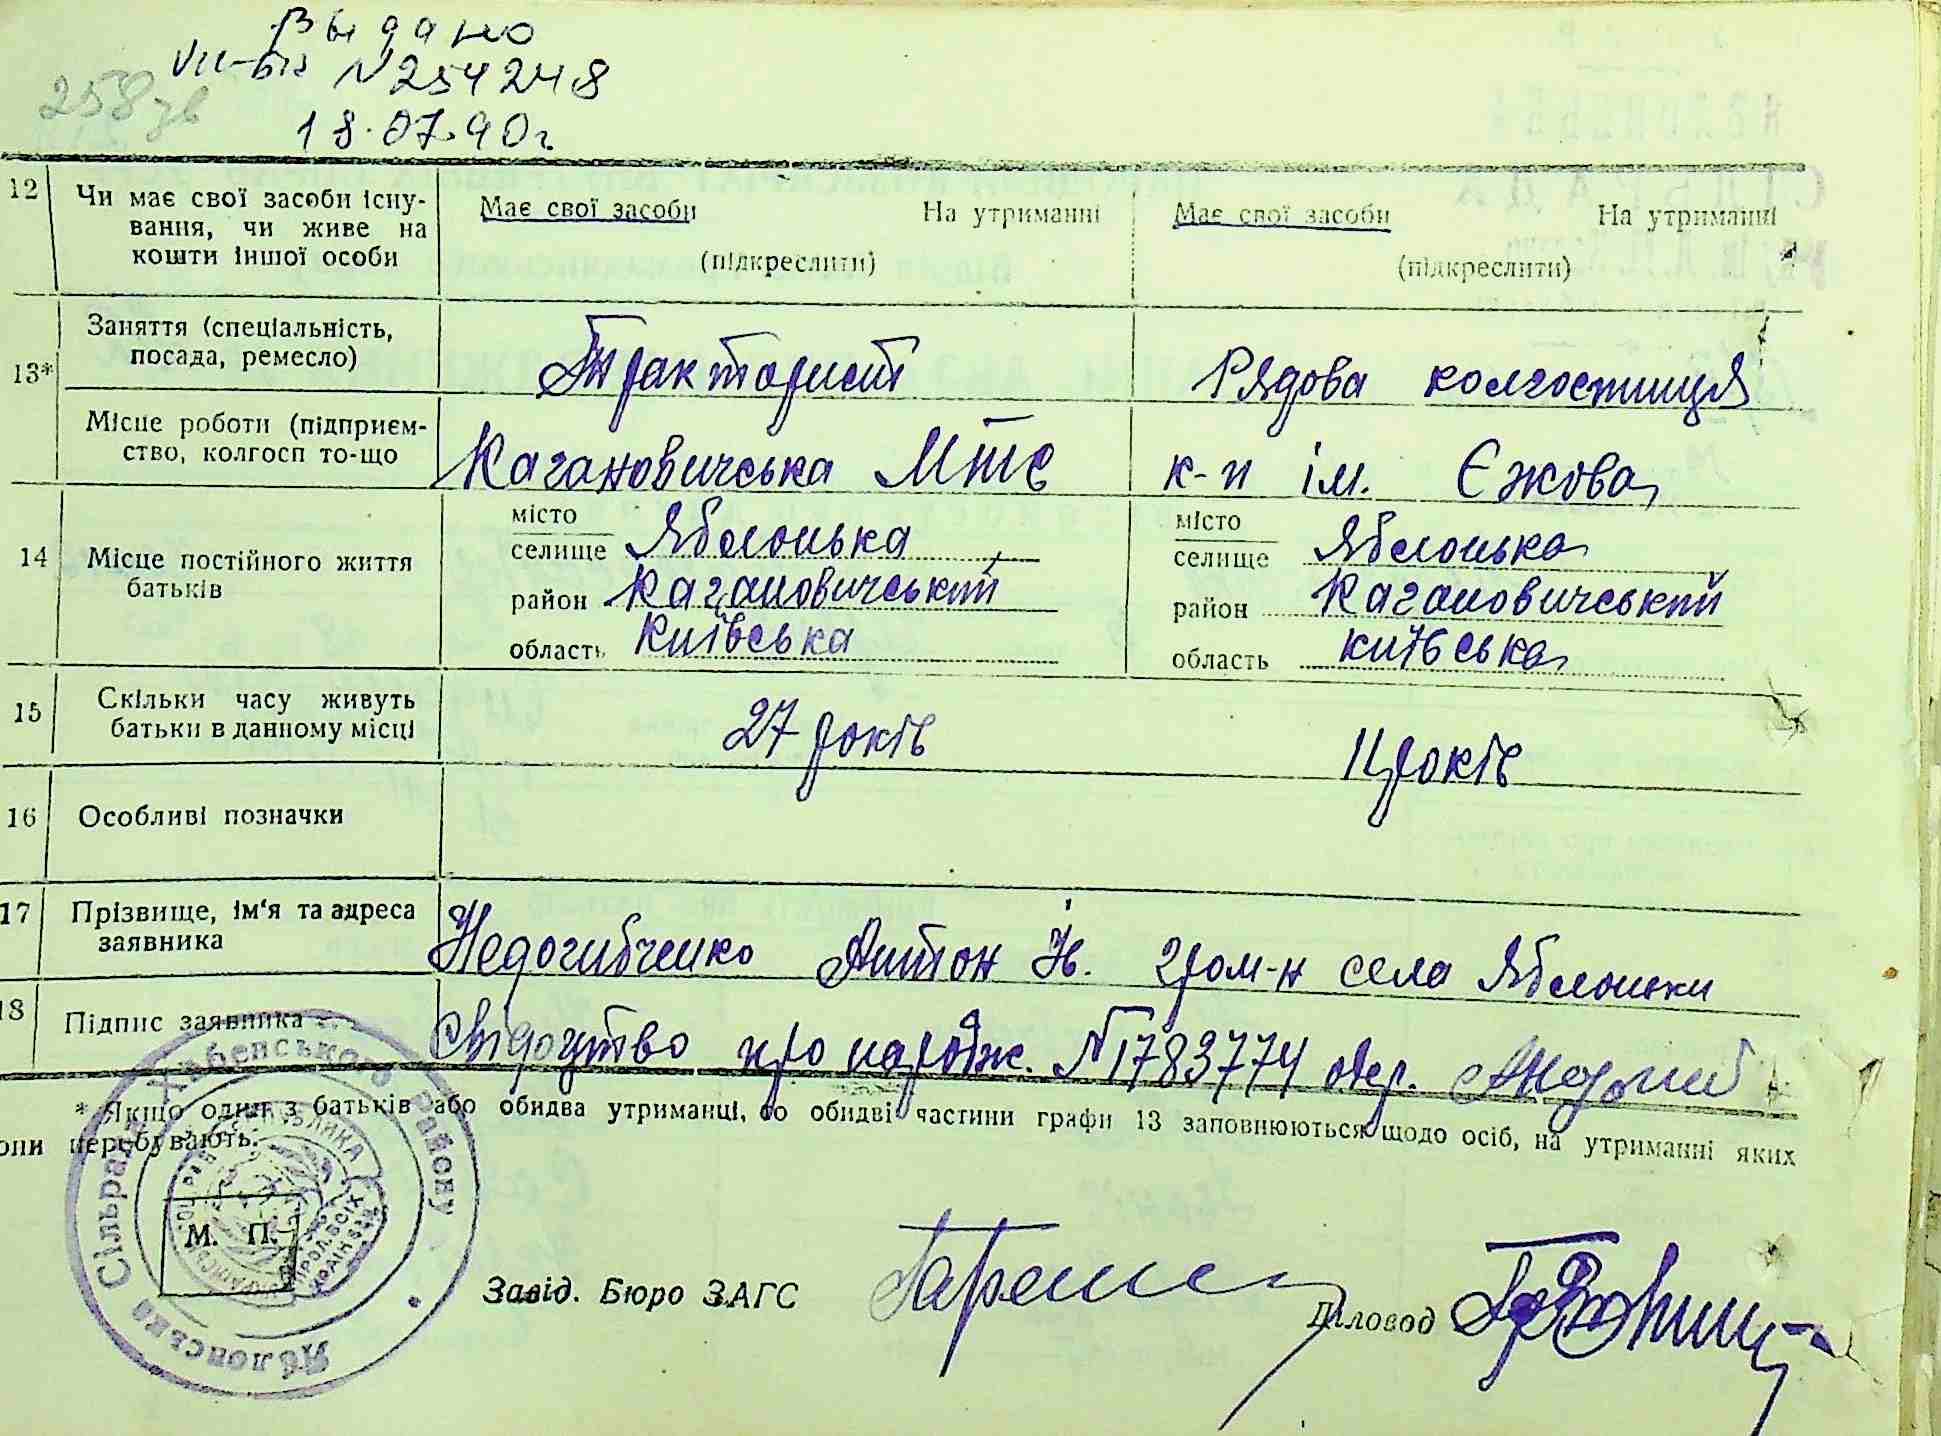 Выдано
VII-БК N 254248
258 зв
18.07.90 г
12 Чи має свої засоби існу-
вання, чи живе на
кошти іншої особи
Має свої засоби На утриманні
(підкреслити)
Має свої засоби На утриманні
(підкреслити)
13*
Заняття (спеціальність,
посада, ремесло)
Тракторист
Рядова колгоспниця
Місце роботи (підприєм-
ство, колгосп то-що
Кагановичська МТС
к-п ім. Єжова
14 Місце постійного життя
батьків
місто
селище Яблонька
район Кагановичський
область Київська
місто
селище Яблонька
район Кагановичський
область Київська
15 Скільки часу живуть
батьки в данному місці
27 років
11 років
16 Особливі позначки
17 Прізвище, ім'я та адреса
заявника
Недогибченко Антон Ів. гром-н села Яблоньки
18 Підпис заявника
Свідоцтво про народж. № 1783774 одер.
* Якщо один з батьків або обидва утриманці, то обидві частини графи 13 заповнюються щодо осіб, на утриманні яких
они перебувають.
Яблонська Сільрада Хабенського району
М. П.
Завід. Бюро ЗАГС
Діловод